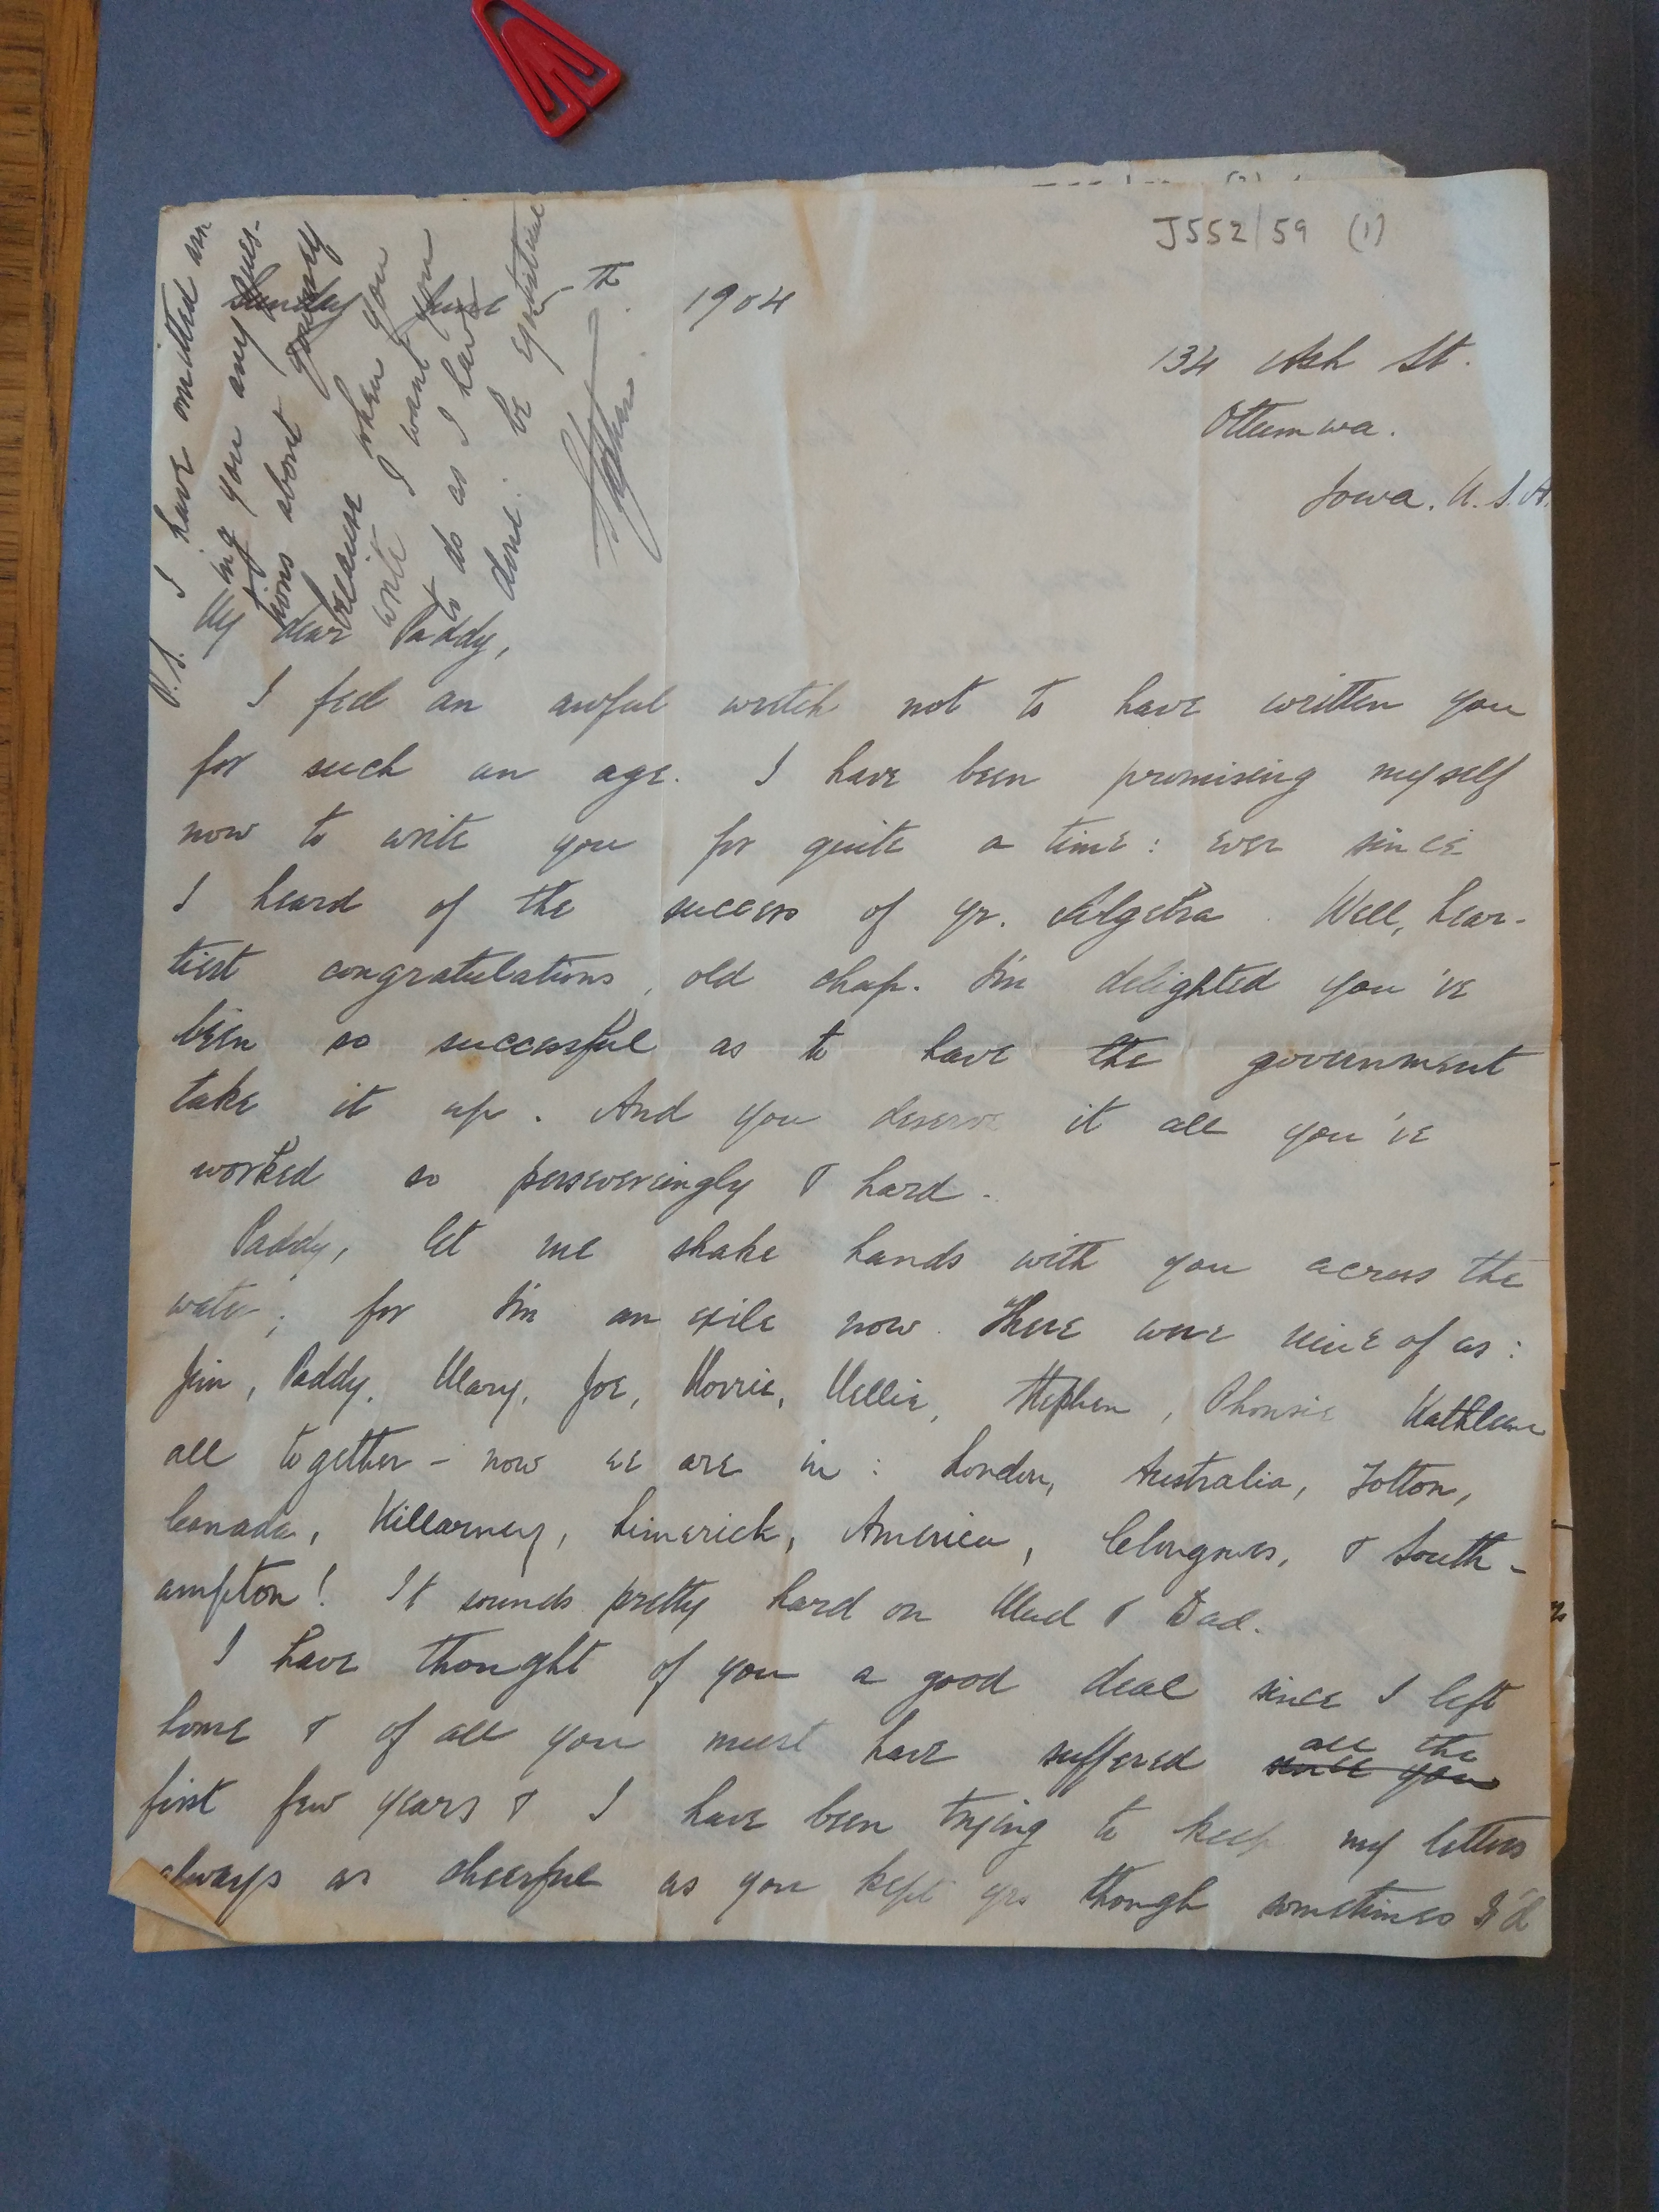 J552/59 (1)
Sunday June 5th. 1904
134 Ash St.
Ottumwa.
Iowa. U.S.A.
My dear Paddy,
I feel an awful wretch not to have written you
for such an age. I have been promising myself
now to write you for quite a time: ever since
I heard of the success of yr. Algebra. Well, hear-
tiest congratulations, old chap. I'm delighted you've
been so successful as to have the government
take it up. And you deserve it all you've
worked so perseveringly & hard.
Paddy, let me shake hands with you across the
water; for I'm an exile now. There were nine of us:
Jim, Paddy, Mary, Joe, Norrie, Nellie, Stephen, Phonsie Kathleen
all together - now we are in: London, Australia, Totton,
Canada, Killarney, Limerick, America, Clongowes, & South-
ampton! It sounds pretty hard on Mud & Dad.
I have thought of you a good deal since I left
home & of all you must have suffered since you all the
first few years & I have been trying to keep my letters
always as cheerful as you kept yrs though sometimes I'd
P.S. I have omitted ask
ing you any ques-
tions about
because when you
write I want you
to do as I have
done. be
Stephen.